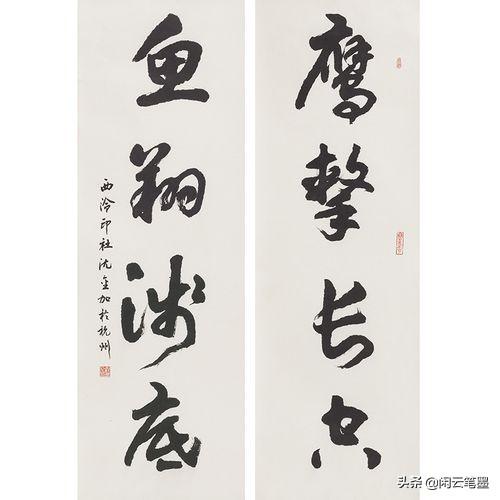 鹰击长空
鱼翔浅底
西泠印社沈金加於杭州
头条@闲云笔墨